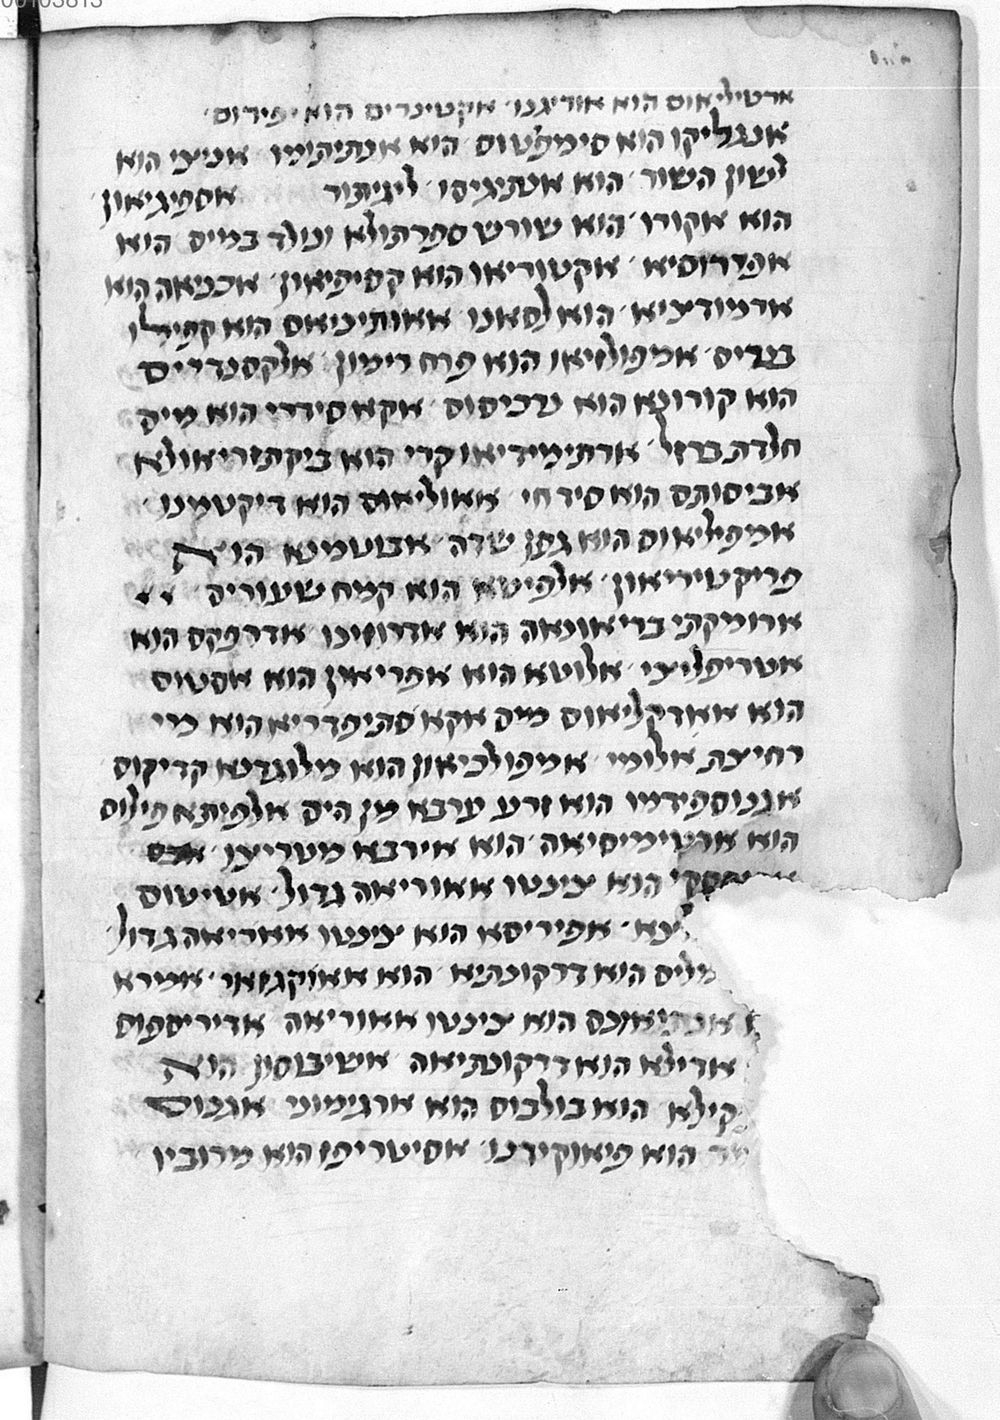 ארטיליאוס הוא אוריגנו אקטינרים הוא יפירוס
אנגליקו הוא סימפטוס הוא אנתיתומו אניצי הוא
לשון השור הוא אנתיגיסו ליגיתור אספיגיאון
הוא אקורו הוא שורש ספרתולא ונולד במים הוא
אפדרוסיא אקטוריאו הוא קסיפיאון אכניאה הוא
ארמודציא הוא לסאנו אאותיניאס הוא קפידלו
בנריס אמפולזיאו הוא פרח רימון אלקסנדרים
הוא קורונא הוא נרכיסוס אקא סידרי הוא מים
חלדת ברזל ארתימידיאו קרי הוא ביקתוריאולא
אביסותס הוא סיד חי אאוליאוס הוא דיקטמנו
אמפיליאוס הוא גפן שדה אבוטמטא הוא
פריקטיריאון אלפיטא הוא קמח שעורים
ארומקתי בריאונאה הוא אדרוזינו אדרפקס הוא
אטריפליצי אלוטא הוא אפריאון הוא אסטוס
הוא אאדקליאוס מים אקא סתיפדריא הוא מיי
רחיצת אלומי אמפולכיאון הוא מלוגרנא קדיקוס
אגנוספידמו הוא זרע ערבא מן הים אלפיתא פילוס
הוא ארטימיסיאה הוא אירבא מטריצן
הוא צינטו אאוריאה גדול אטיטוס
אפיריסא הוא צינטו אאריאה גדול
הוא דרקונתיא הוא אאוקגזאר אמירא
הוא צינטו אאוריאה אדיריספוס
אדילא הוא דרקונתיאה אשיבוסין הוא
קילא הוא בולבוס הוא ארגימוני אגנוס
הוא פיאוקידנו אסיטריפו הוא מרוביו